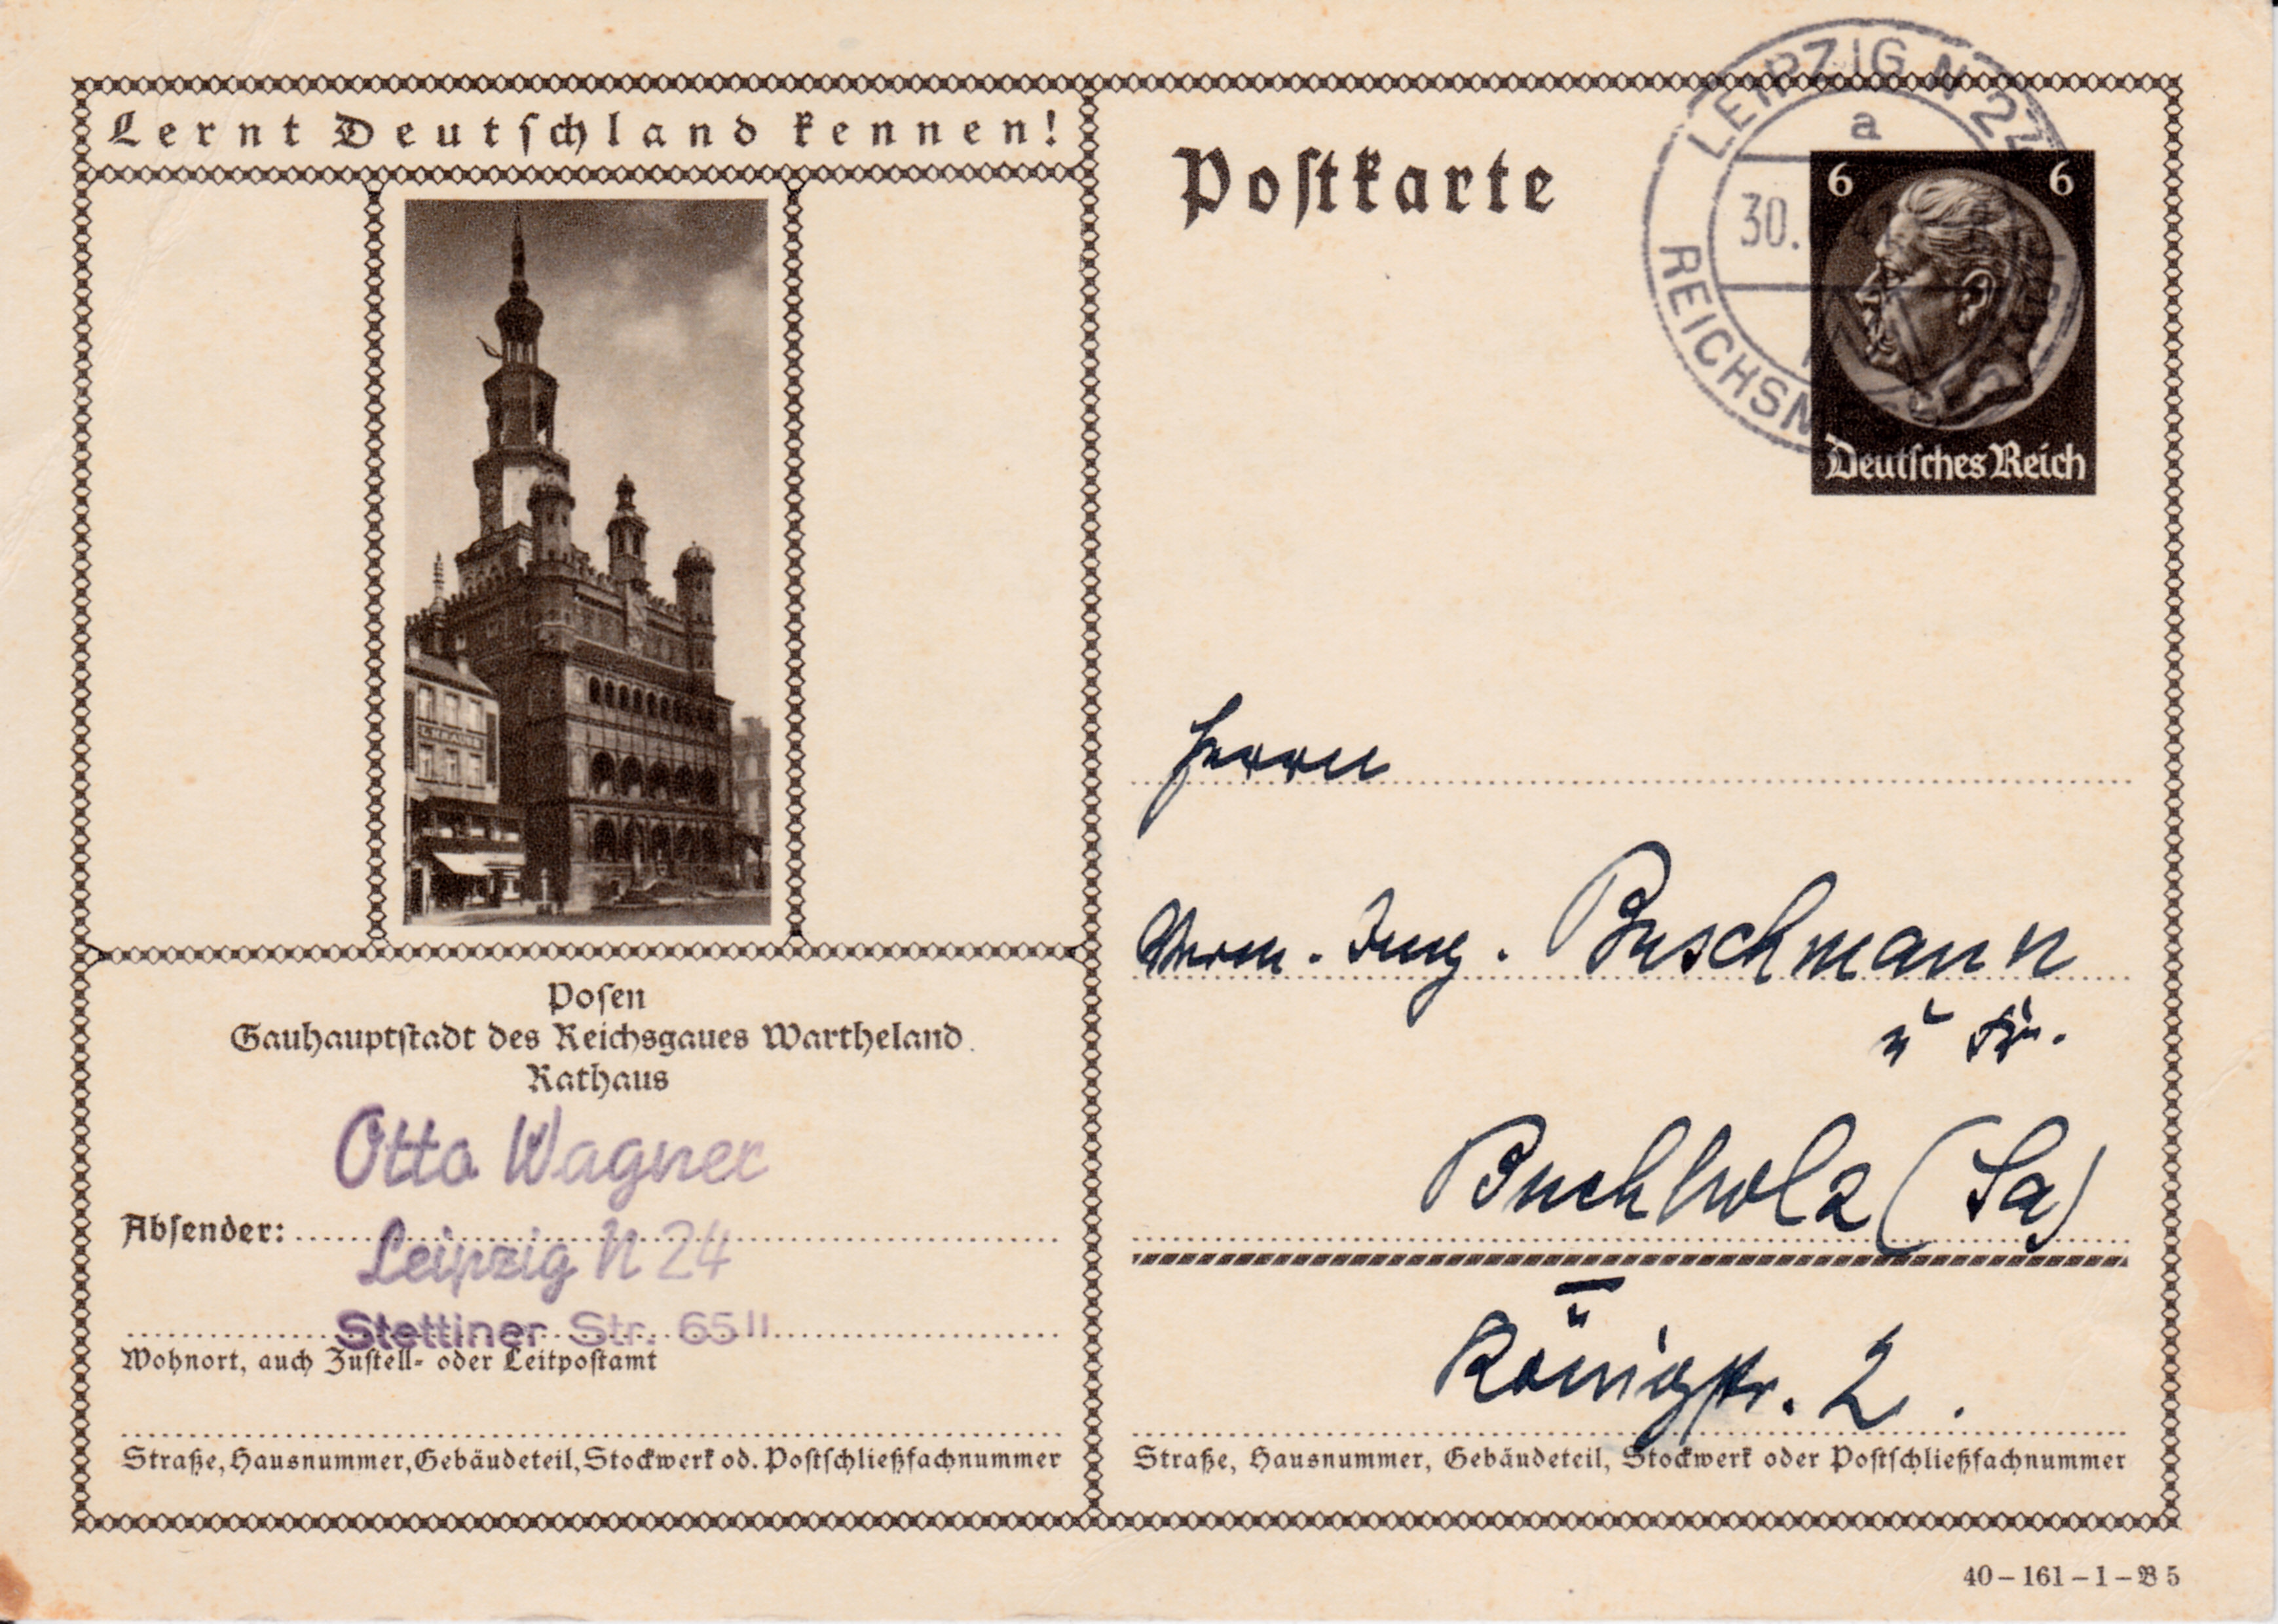 Lernt Deutschland kennen!
Posen
Gauhauptstadt des Reichsgaues Wartheland
Rathaus
Otto Wagner
Absender:
Leipzig N 24
Stettiner Str. 65 II
Wohnort, auch Zustell- oder Leitpostamt
Straße, Hausnummer, Gebäudeteil, Stockwerk od. Postschließfachnummer
Postkarte
LEIPZIG N 24
a
30.
REICHSM
6 6
Deutsches Reich
Herrn
Verm. Ing. Buschmann
u Fr.
Buchholz (Sa)
Königstr. 2.
Straße, Hausnummer, Gebäudeteil, Stockwerk oder Postschließfachnummer
40 – 161 – 1 – B 5